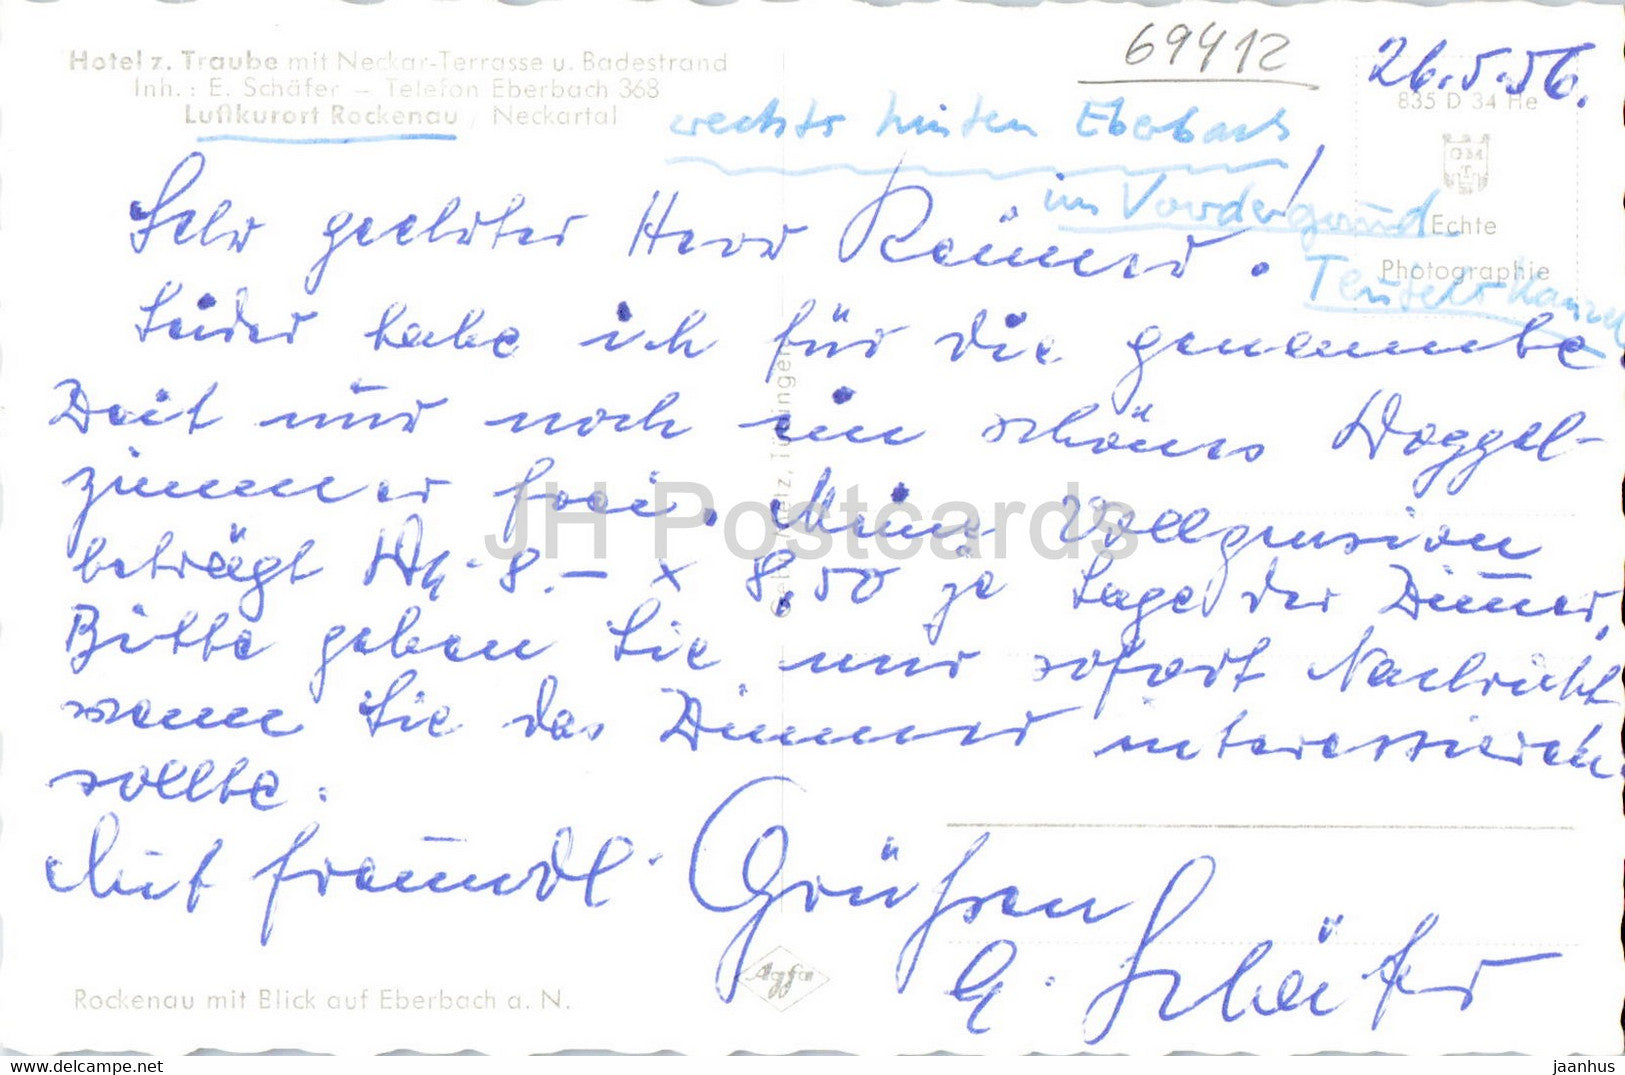 Hotel z. Traube mit Neckar-Terrasse u. Badestrand
Inh.: E. Schäfer – Telefon Eberbach 368
Luftkurort Rockenau / Neckartal
69412
26.5.56.
835 D 34 He
rechts hinten Eberbach
im Vordergrund
Teufelskanzel
Echte
Photographie
Sehr geehrter Herr
Leider habe ich für die genannte
Zeit nur noch ein schönes Doppel-
zimmer frei. Meine Vollpension
beträgt DM. 8.– x 8,50 je Lage der Zimmer.
Bitte geben Sie mir sofort Nachricht
wenn Sie das Zimmer interessieren
sollte.
Mit freundl. Grüßen
E. Schäfer
Agfa
Rockenau mit Blick auf Eberbach a. N.
JH Postcards
jaanhus